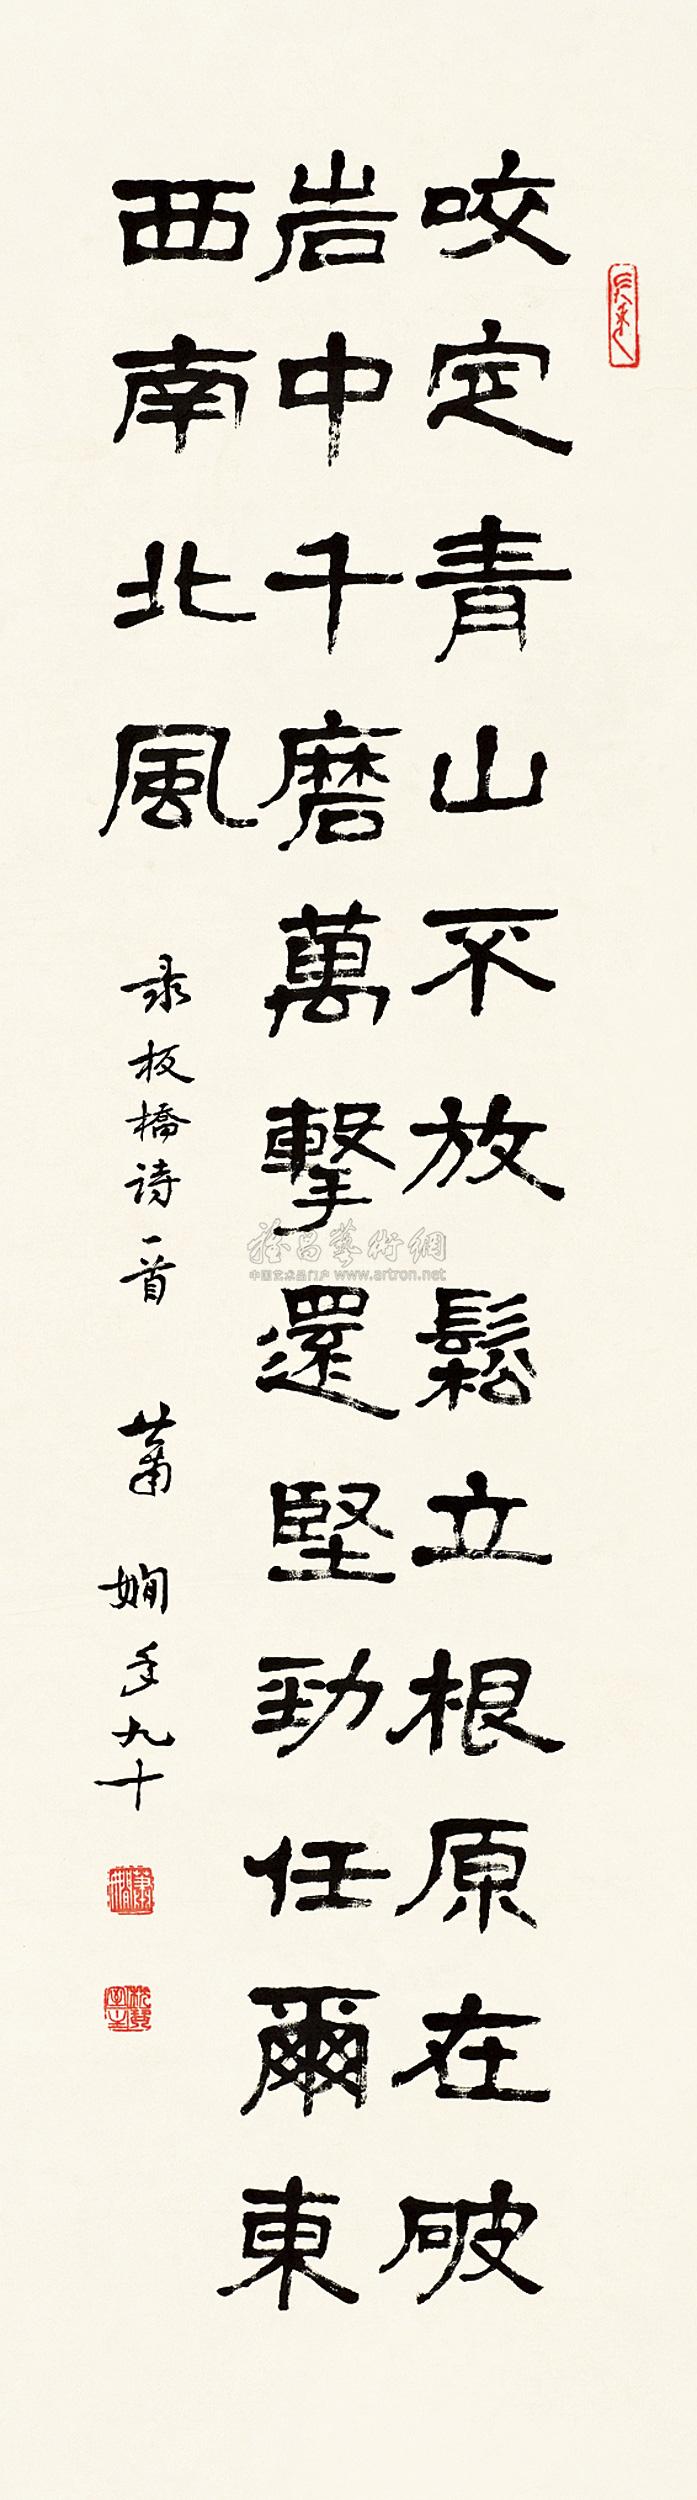 咬定青山不放鬆立根原在破
岩中千磨萬擊還堅勁任爾東
西南北風
录板橋诗一首 蕭嫻年九十
雅昌藝術網
中国艺术品门户 www.artron.net